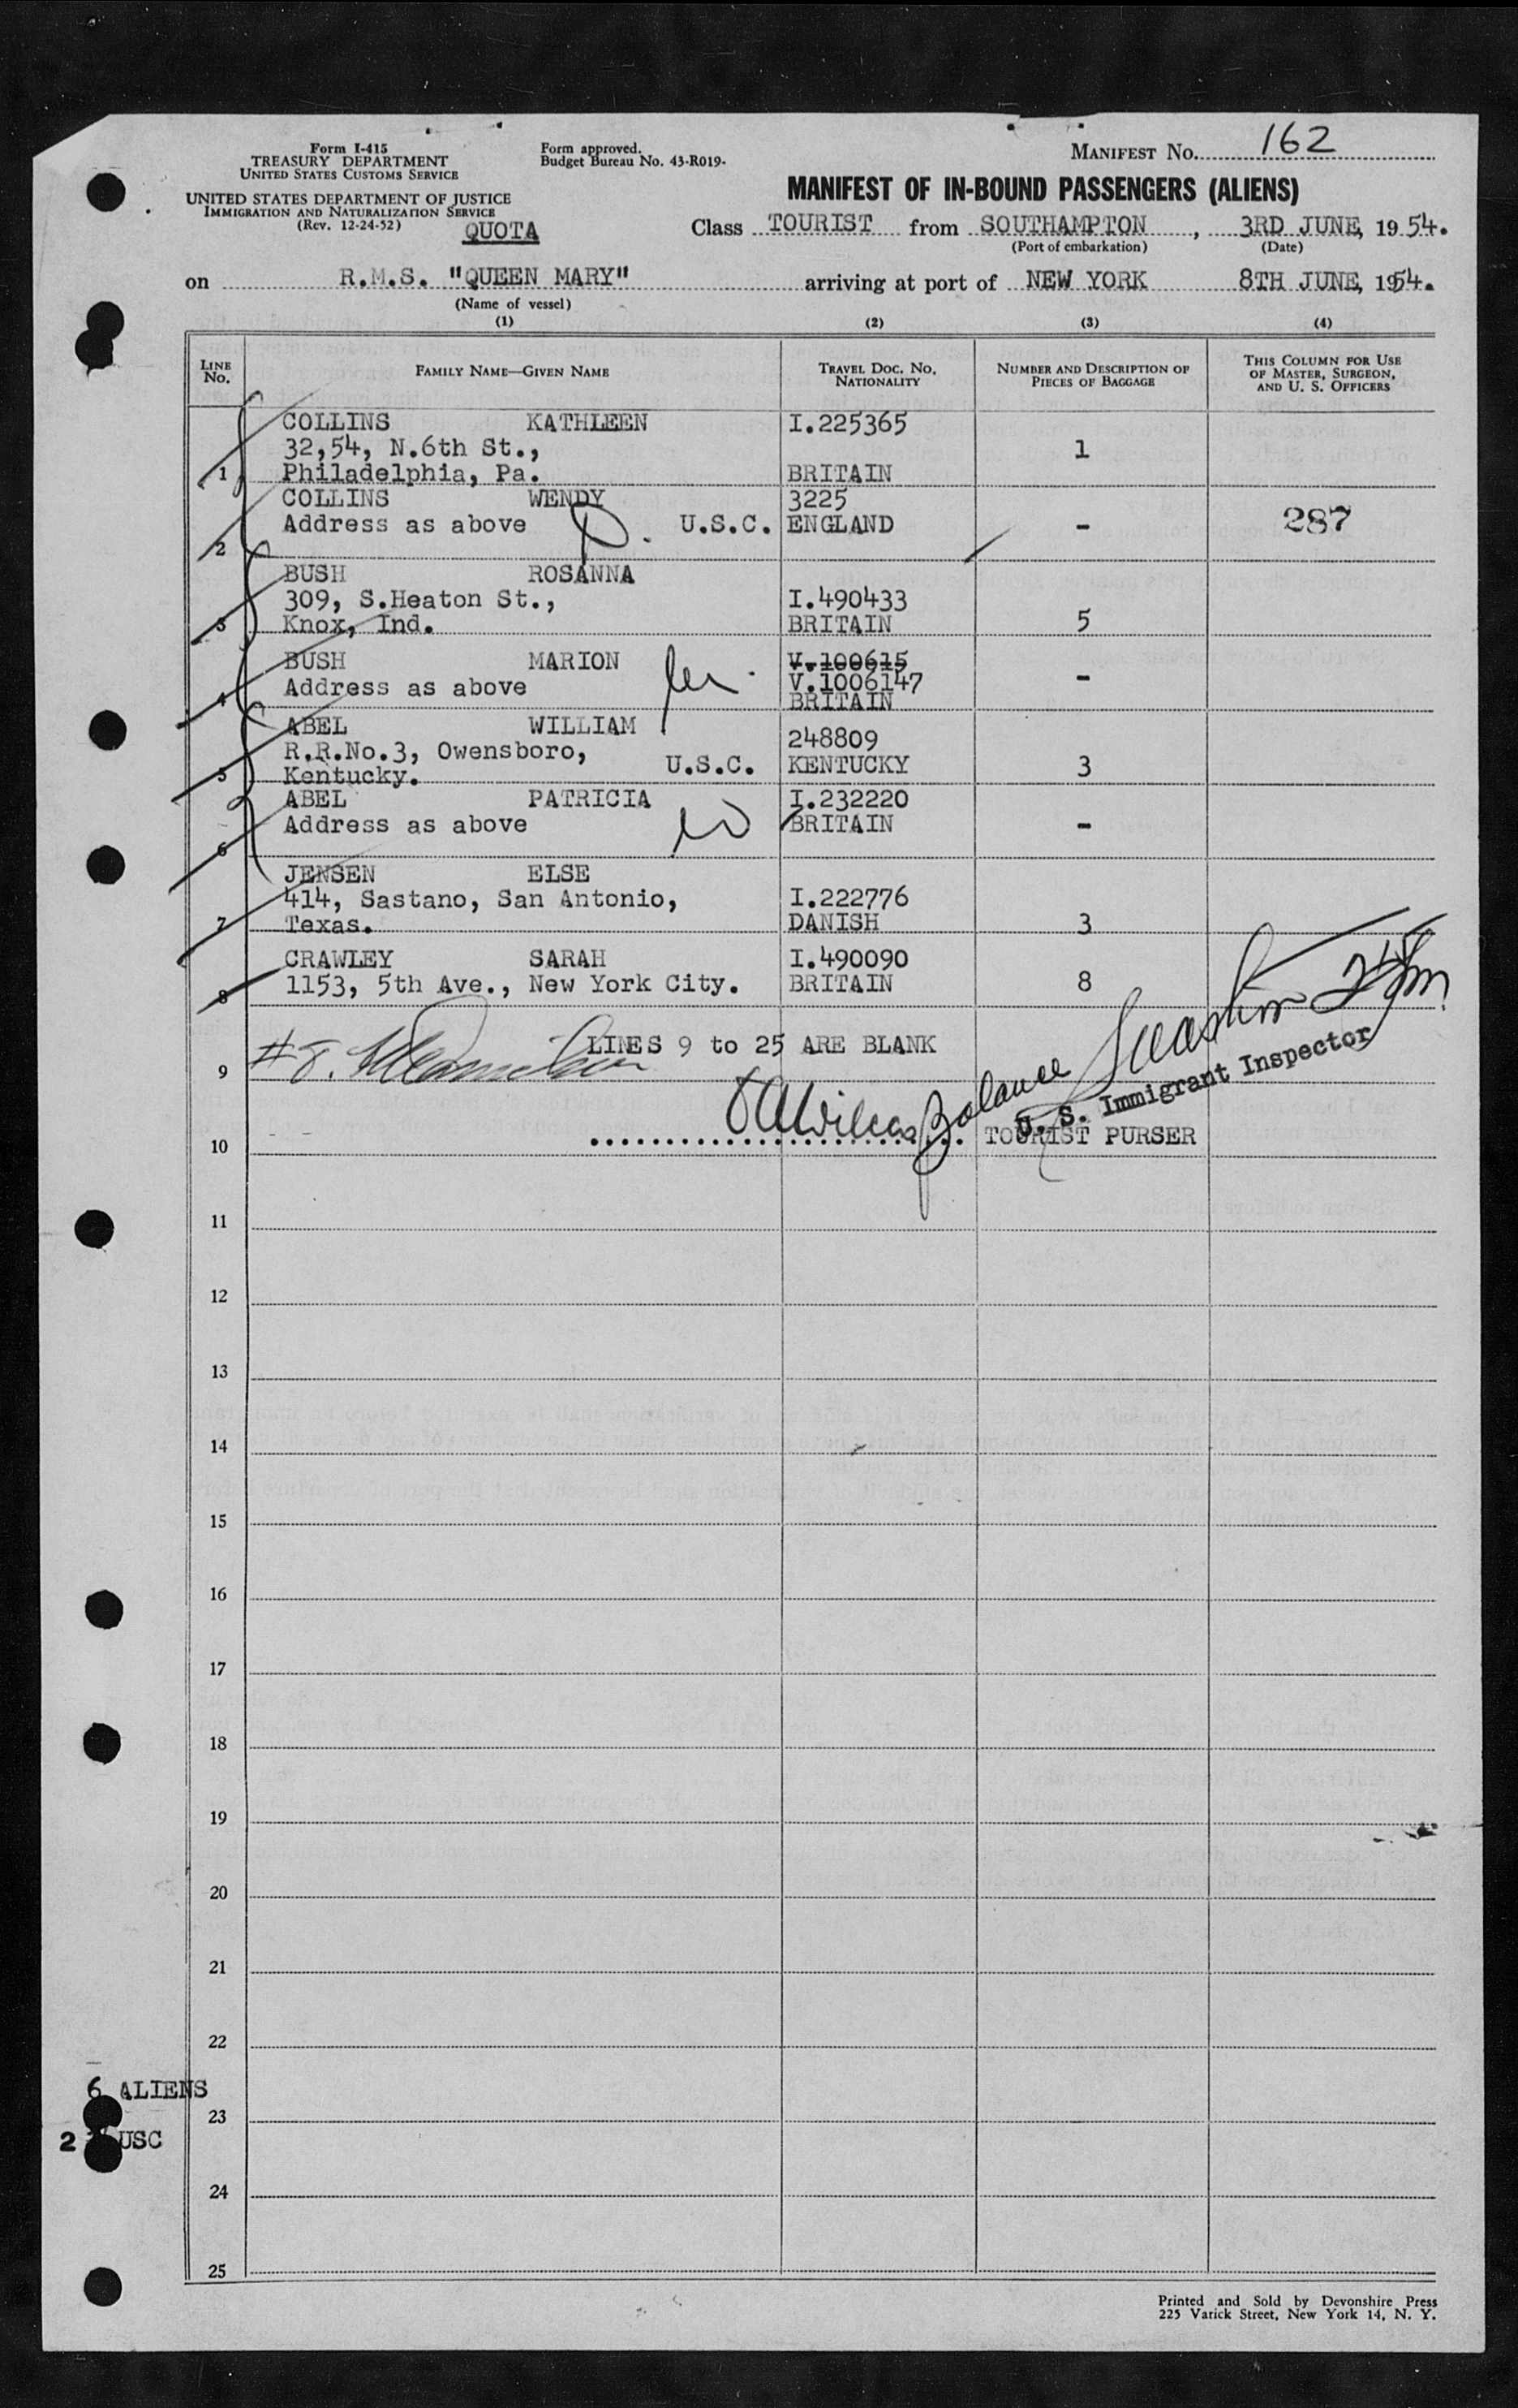 Form I-415
TREASURY DEPARTMENT
UNITED STATES CUSTOMS SERVICE
UNITED STATES DEPARTMENT OF JUSTICE
IMMIGRATION AND NATURALIZATION SERVICE
(Rev. 12-24-52)
QUOTA
Form approved.
Budget Bureau No. 43-R019-
MANIFEST NO. 162
MANIFEST OF IN-BOUND PASSENGERS (ALIENS)
Class TOURIST from SOUTHAMPTON, 3RD JUNE, 1954.
(Port of embarkation) (Date)
on R.M.S. "QUEEN MARY" arriving at port of NEW YORK 8TH JUNE, 1954.
(Name of vessel)
(1) (2) (3) (4)
LINE No. FAMILY NAME—GIVEN NAME TRAVEL DOC. NO. NATIONALITY NUMBER AND DESCRIPTION OF PIECES OF BAGGAGE THIS COLUMN FOR USE OF MASTER, SURGEON, AND U. S. OFFICERS
COLLINS KATHLEEN I.225365
32,54, N.6th St., 1
1 Philadelphia, Pa. BRITAIN
COLLINS WENDY 3225
Address as above U.S.C. ENGLAND - 287
2
BUSH ROSANNA
309, S.Heaton St., I.490433
3 Knox, Ind. BRITAIN 5
BUSH MARION V.100615
Address as above V.1006147 -
4 BRITAIN
ABEL WILLIAM 248809
R.R.No.3, Owensboro,
5 Kentucky. U.S.C. KENTUCKY 3
ABEL PATRICIA I.232220
Address as above BRITAIN -
6
JENSEN ELSE
414, Sastano, San Antonio, I.222776
7 Texas. DANISH 3
CRAWLEY SARAH I.490090
8 1153, 5th Ave., New York City. BRITAIN 8
LINES 9 to 25 ARE BLANK
9 #8.
Balance
U. S. Immigrant Inspector
10 TOURIST PURSER
11
12
13
14
15
16
17
18
19
20
21
22
6 ALIENS
23
2 USC
24
25
Printed and Sold by Devonshire Press
225 Varick Street, New York 14, N. Y.